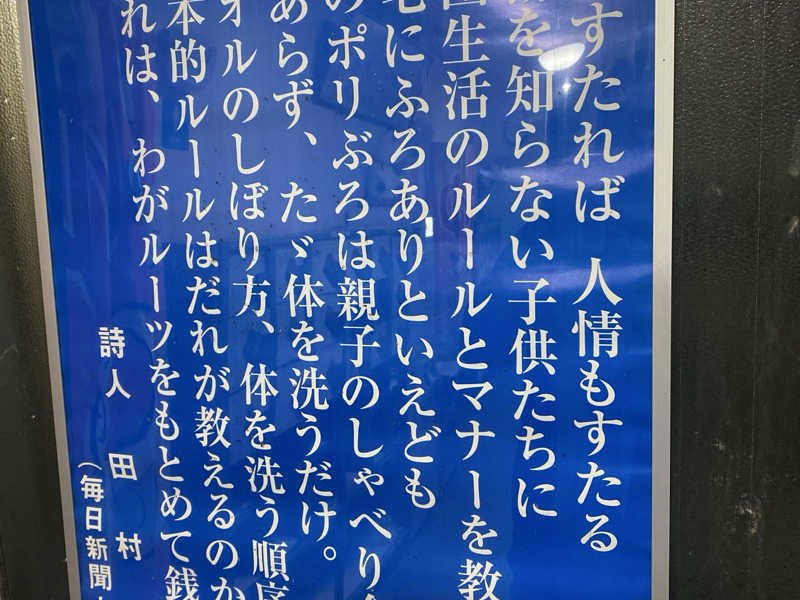 すたれば 人情もすたる
を知らない子供たちに
生活のルールとマナーを教
にふろありといえども
のポリぶろは親子のしゃべり
あらず、たゞ体を洗うだけ。
オルのしぼり方、体を洗う順序
本的ルールはだれが教えるのか
れは、わがルーツをもとめて銭
詩人 田村
(毎日新聞